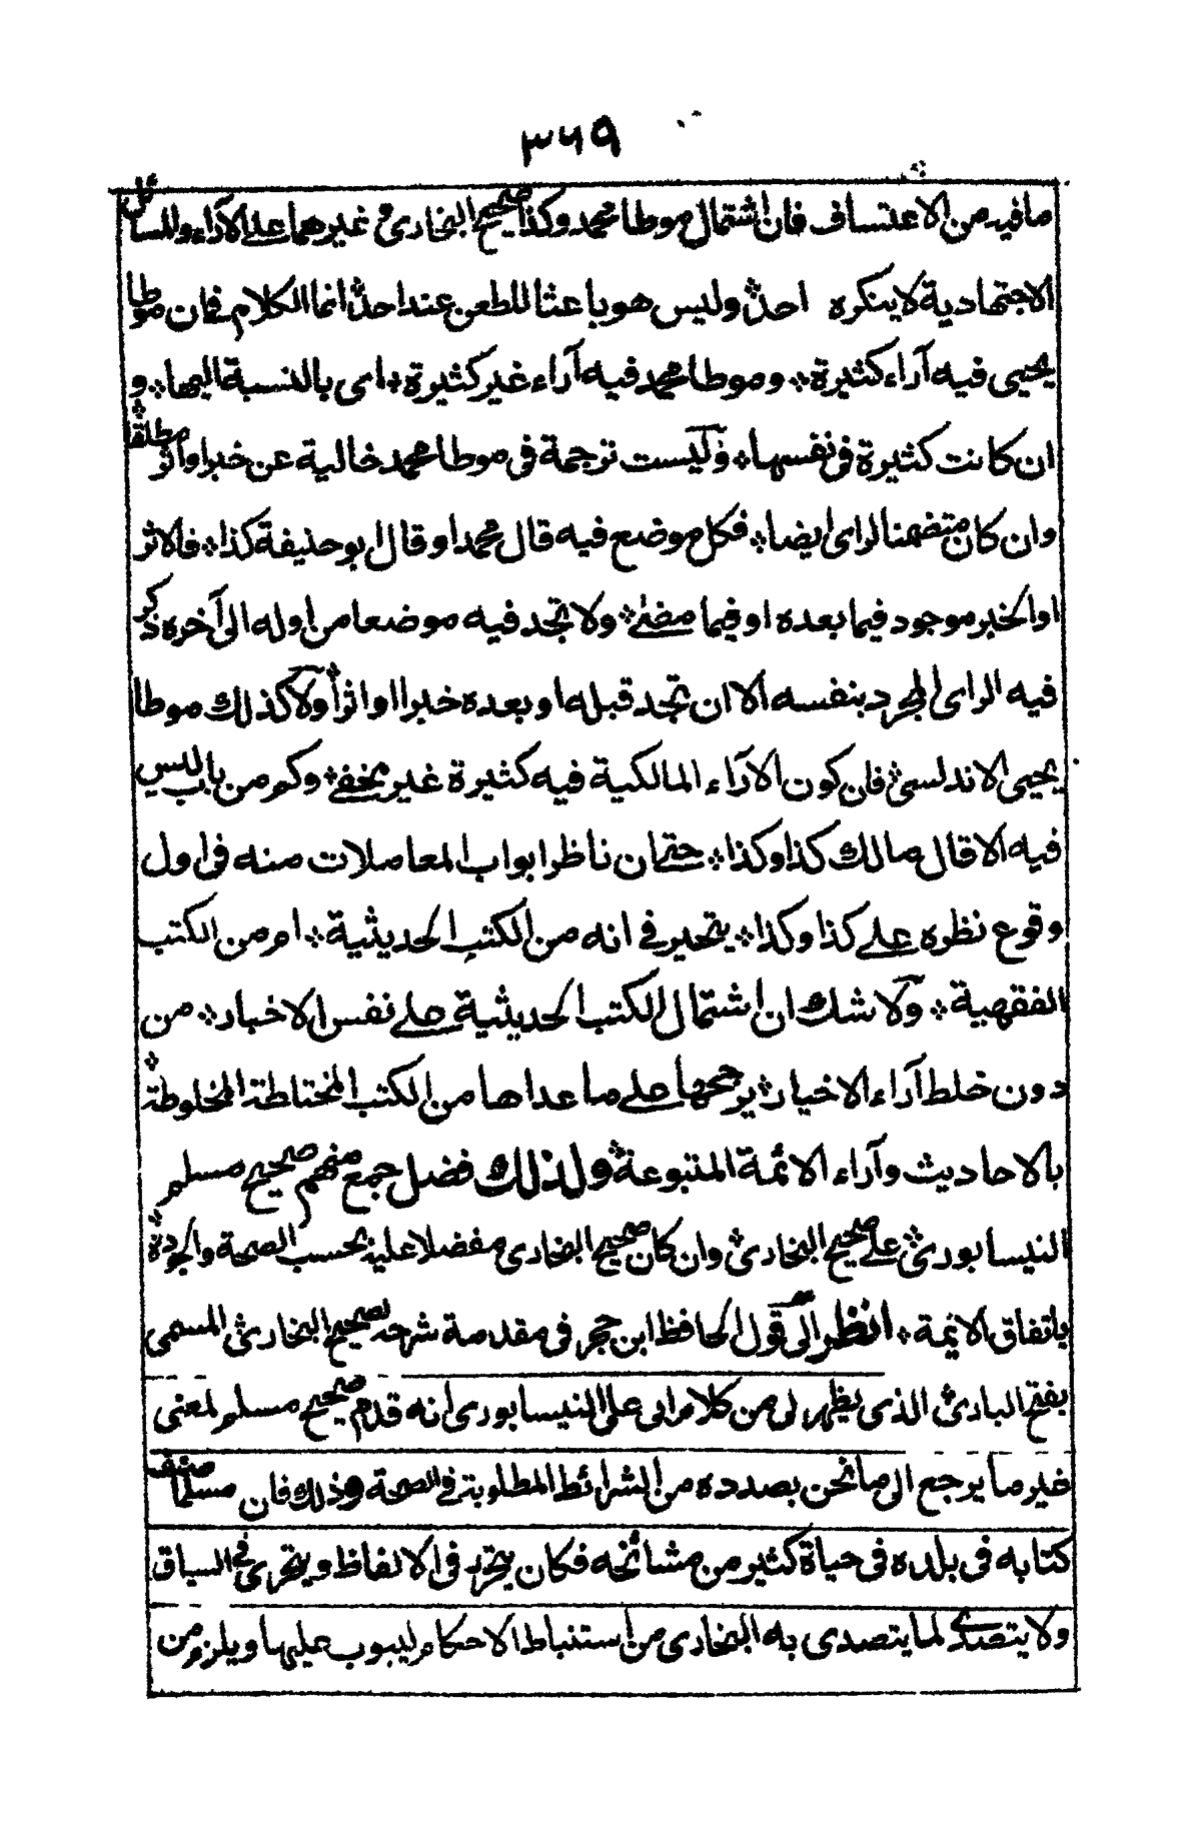 ٣٦٩
ما فيه من الاعتساف فان اشتمال موطا محمد وكذا صحيح البخاري وغيرهما على الآراء والمسائل
الاجتهادية لا ينكره احد وليس هو باعثا للطعن عند احد انما الكلام فى ان موطا
يحيى فيه آراء كثيرة وموطا محمد فيه آراء غير كثيرة اى بالنسبة اليها و
ان كانت كثيرة فى نفسها وليست ترجمة فى موطا محمد خالية عن خبر او اثر مطلقا
وان كان متضمنا لراى ايضا فكل موضع فيه قال محمد او قال ابو حنيفة كذا فالاثر
او الخبر موجود فيما بعده او فيما مضى ولا تجد فيه موضعا من اوله الى آخره ذكر
فيه الراى المجرد بنفسه الا ان تجد قبله او بعده خبرا او اثرا ولا كذلك موطا
يحيى الاندلسى فان كون الآراء المالكية فيه كثيرة غير مخفى وكم من باب ليس
فيه الا قال مالك كذا وكذا حتى ان ناظر ابواب المعاملات منه فى اول
وقوع نظره على كذا وكذا يتحير فى انه من الكتب الحديثية ام من الكتب
الفقهية ولا شك ان اشتمال الكتب الحديثية على نفس الاخبار من
دون خلط آراء الاخيار يرجحها على ما عداها من الكتب المختلطة المخلوطة
بالاحاديث وآراء الائمة المتبوعة ولذلك فضل جمع منهم صحيح مسلم
النيسابورى على صحيح البخارى وان كان صحيح البخارى مفضلا عليه بحسب الصحة والجودة
باتفاق الائمة انظر الى قول الحافظ ابن حجر فى مقدمة شرحه لصحيح البخارى المسمى
بفتح البارى الذى يظهر لى من كلام ابى على النيسابورى انه قدم صحيح مسلم لمعنى
غير ما يرجع الى ما نحن بصدده من الشرائط المطلوبة فى الصحة وذلك فان مسلما صنف
كتابه فى بلده فى حياة كثير من مشائخه فكان يتحرز فى الالفاظ ويتحرى فى السياق
ولا يتصدى لما يتصدى به البخارى من استنباط الاحكام ليبوب عليها ويلزم من